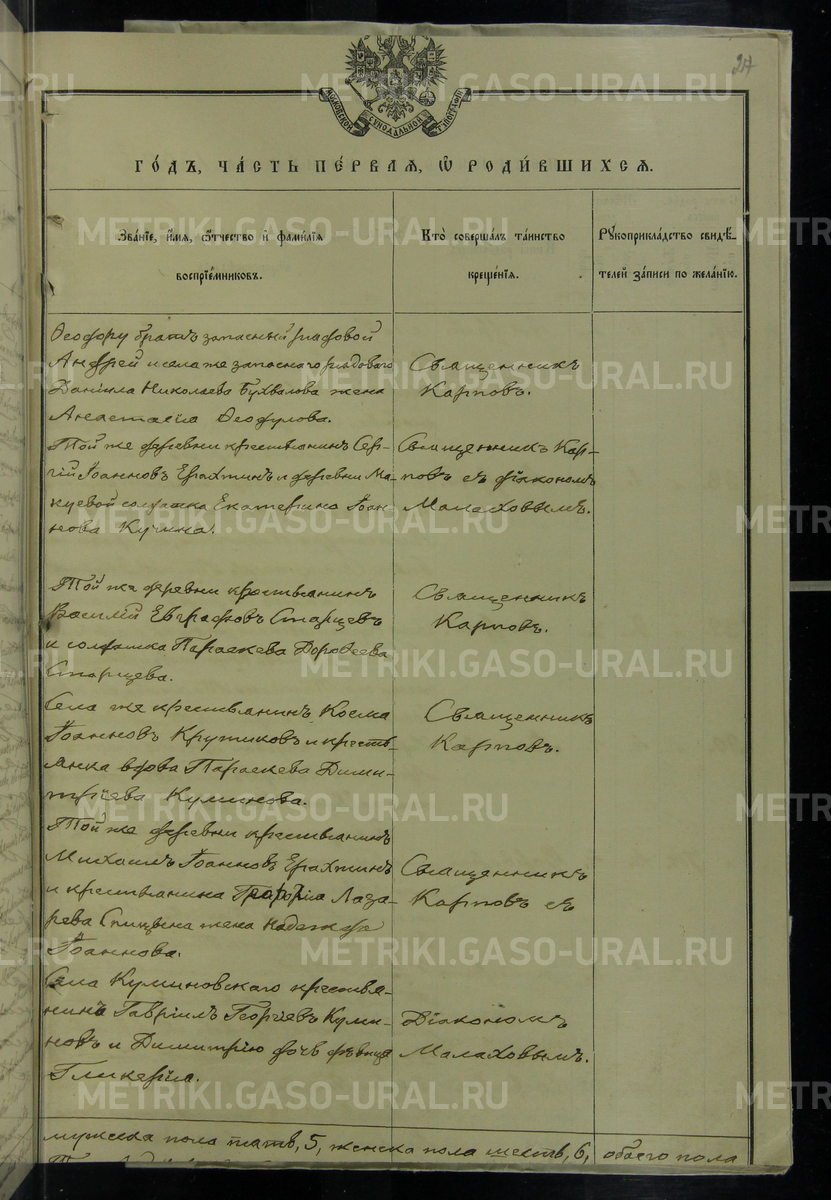 27
МОСКОВСКОЙ СУНОДАЛЬНОЙ ТУПОГРАФІИ
ГО́ДЪ, ЧА́СТЬ ПЕ́РВАЯ, Ѽ РОДИ́ВШИХСЯ.
Зва́нїе, и́мя, ѻ҆́тчество и҆ фами́лїя
воспрїе́мниковъ.
Кто̀ соверша́лъ та́инство
креще́нїя.
Рꙋкоприкла́дство свидѣ́-
телей за́писи по жела́нїю.
Ѳеодору братъ запасный рядовой
Андрей и села же запаснаго рядоваго
Даніила Николаева Бухвалова жена
Анастасія Ѳеодулова.
Священникъ
Карповъ.
Той же деревни крестьянинъ Сер-
гій Іоанновъ Ерахтинъ и деревни Ма-
куевой солдатка Екатерина Іоан-
нова Кучина.
Священникъ Кар-
повъ съ діакономъ
Малаховымъ.
Той же деревни крестьянинъ
Василій Евграфовъ Старцевъ
и солдатка Параскева Дороѳеева
Старцева.
Священникъ
Карповъ.
Села же крестьянинъ Косма
Іоанновъ Крутиковъ и кресть-
янка вдова Параскева Дими-
тріева Куминова.
Священникъ
Карповъ.
Той же деревни крестьянинъ
Михаилъ Іоанновъ Ерахтинъ
и крестьянина Лаза-
рева Спицына жена Надежда
Іоаннова.
Священникъ
Карповъ съ
Села Куминовскаго крестья-
нинъ Гавріилъ Георгіевъ Куми-
новъ и Димитрію дочь дѣвица
Гликерія.
Діакономъ
Малаховымъ.
мужска пола пять, 5, женска пола шесть, 6, обоего пола
METRIKI.GASO-URAL.RU